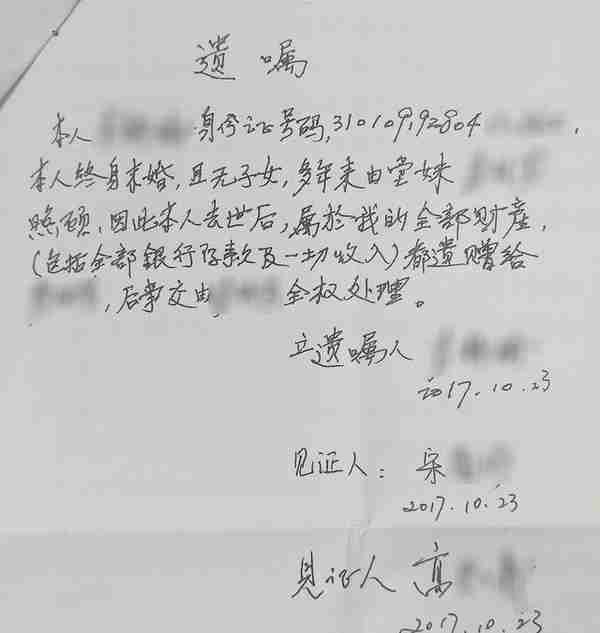 遗嘱
本人 身份证号码,310109192804 ,
本人终身未婚,且无子女,多年来由堂妹
照顾,因此本人去世后,属於我的全部财產,
(包括全部銀行存款及一切收入)都遗赠给
,后事交由 全权处理。
立遗嘱人
2017.10.23
见证人: 宋
2017.10.23
见证人 高
2017.10.23